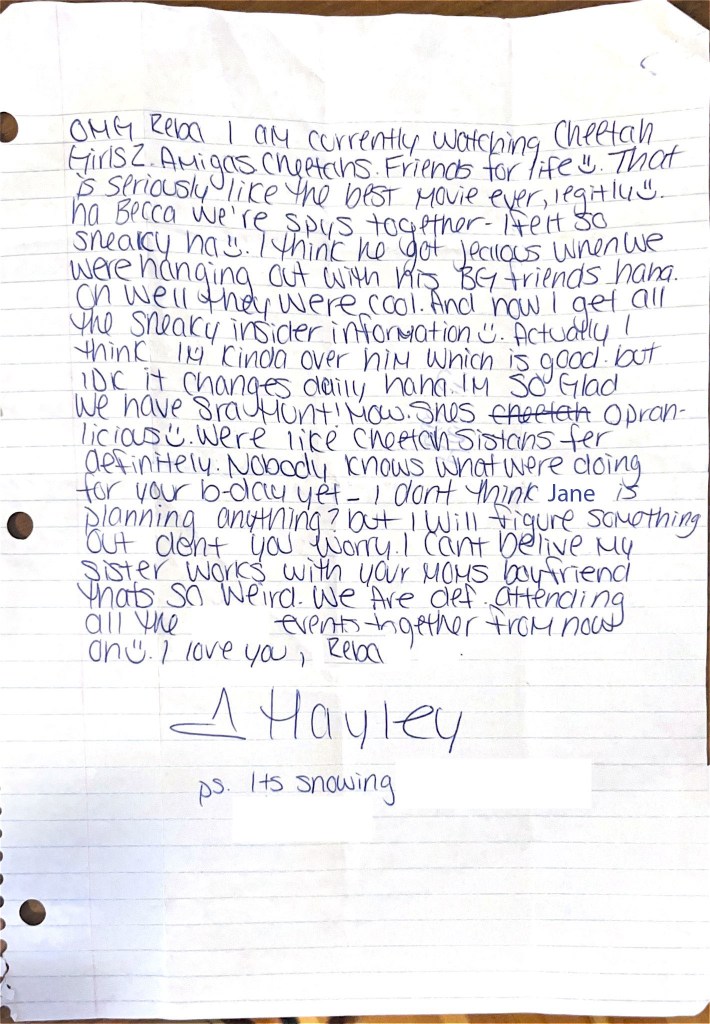 OMG Reba I am currently watching Cheetah
Girls 2. Amigas Cheetahs. Friends for life☺. That
is seriously like the best movie ever, legitly☺.
ha Becca we're spys together - I felt so
sneaky ha☺. I think he got jealous when we
were hanging out with his BG friends haha.
Oh well they were cool. And now I get all
the sneaky insider information☺. Actually I
think Im kinda over him which is good. but
IDK it changes daily haha. Im so Glad
we have Sra Hunt! Mow. Shes ~~cheetah~~ Oprah-
licious☺. Were like Cheetah Sistahs fer
definitely. Nobody knows what were doing
for your b-day yet - I dont think Jane is
planning anything? but I will figure something
out dont you worry. I cant belive my
sister works with your moms boyfriend
thats so weird. We Are def. attending
all the events together from now
on☺. I love you, Reba
Hayley
ps. Its snowing